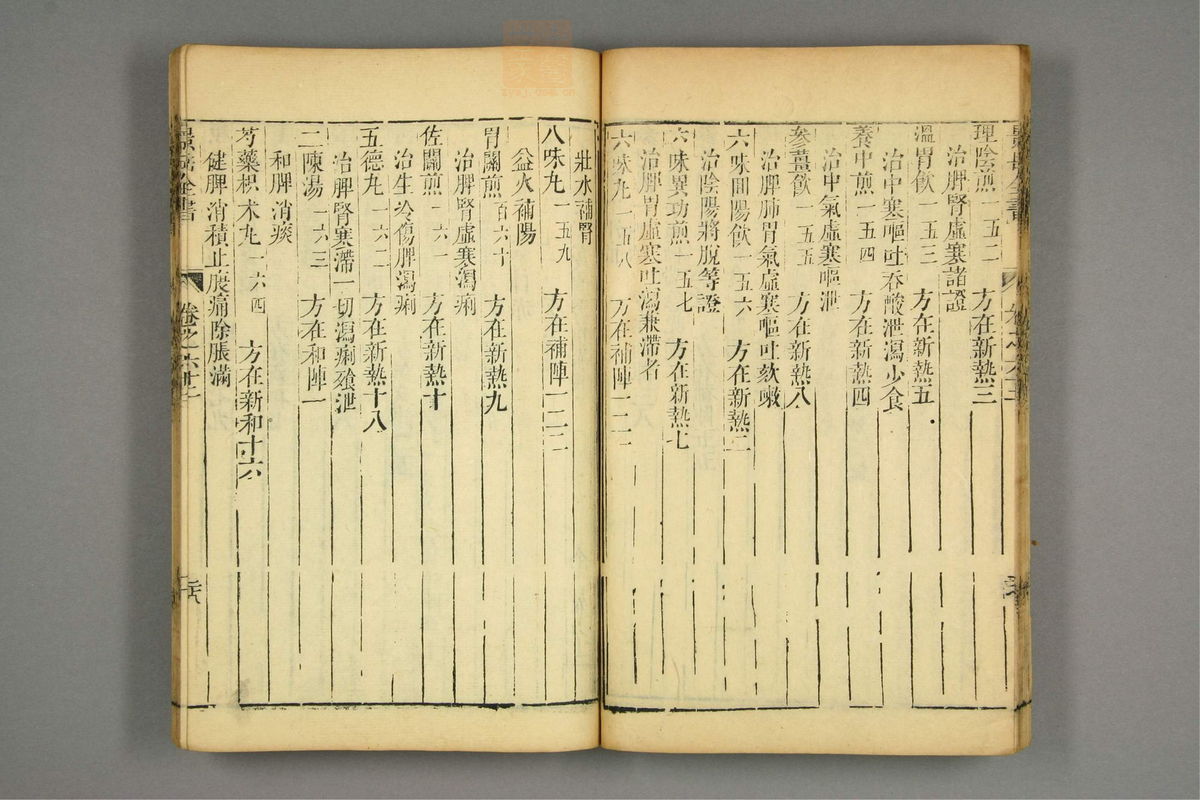 理陰煎一五二 方在新熱三
治脾腎虛寒諸證
溫胃飲一五三 方在新熱五
治中寒嘔吐吞酸泄瀉少食
養中煎一五四 方在新熱四
治中氣虛寒嘔泄
參薑飲一五五 方在新熱八
治脾肺胃氣虛寒嘔吐欬嗽
六味回陽飲一五六 方在新熱二
治陰陽將脫等證
六味異功煎一五七 方在新熱七
治脾胃虛寒吐瀉兼滯者
六味丸一五八 方在補陣一二
壯水補腎
八味丸一五九 方在補陣一二二
益火補陽
胃關煎百六十 方在新熱九
治脾腎虛寒瀉痢
佐關煎一六一 方在新熱十
治生冷傷脾瀉痢
五德丸一六二 方在新熱十八
治脾腎寒滯一切瀉痢飧泄
二陳湯一六三 方在和陣一
和脾消痰
芍藥枳朮丸一六四 方在新和十六
健脾消積止腹痛除脹滿
景岳全書 卷之六十三